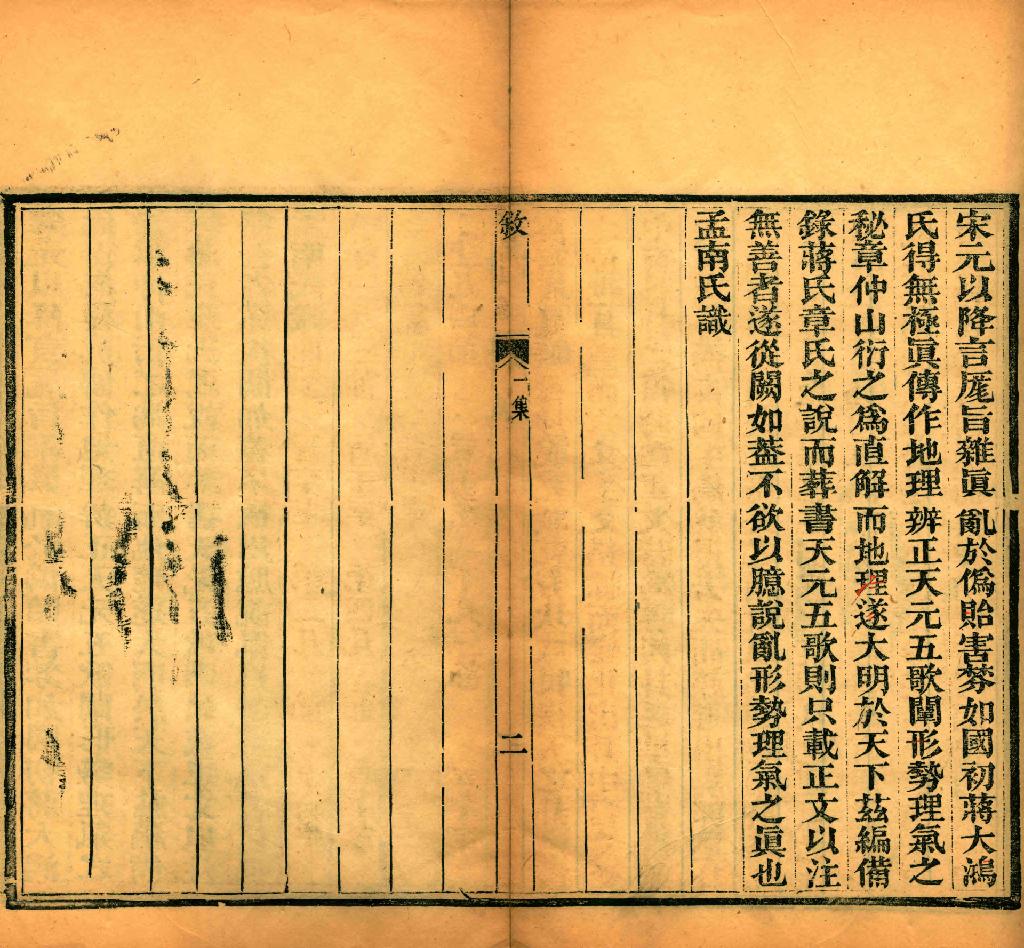 宋元以降言厖旨雜眞亂於僞貽害棼如國初蔣大鴻
氏得無極眞傳作地理辨正天元五歌闡形勢理氣之
秘章仲山衍之爲直解而地理遂大明於天下茲編備
錄蔣氏章氏之說而葬書天元五歌則只載正文以注
無善者遂從闕如葢不欲以臆說亂形勢理氣之眞也
孟南氏識
敘
一集
二